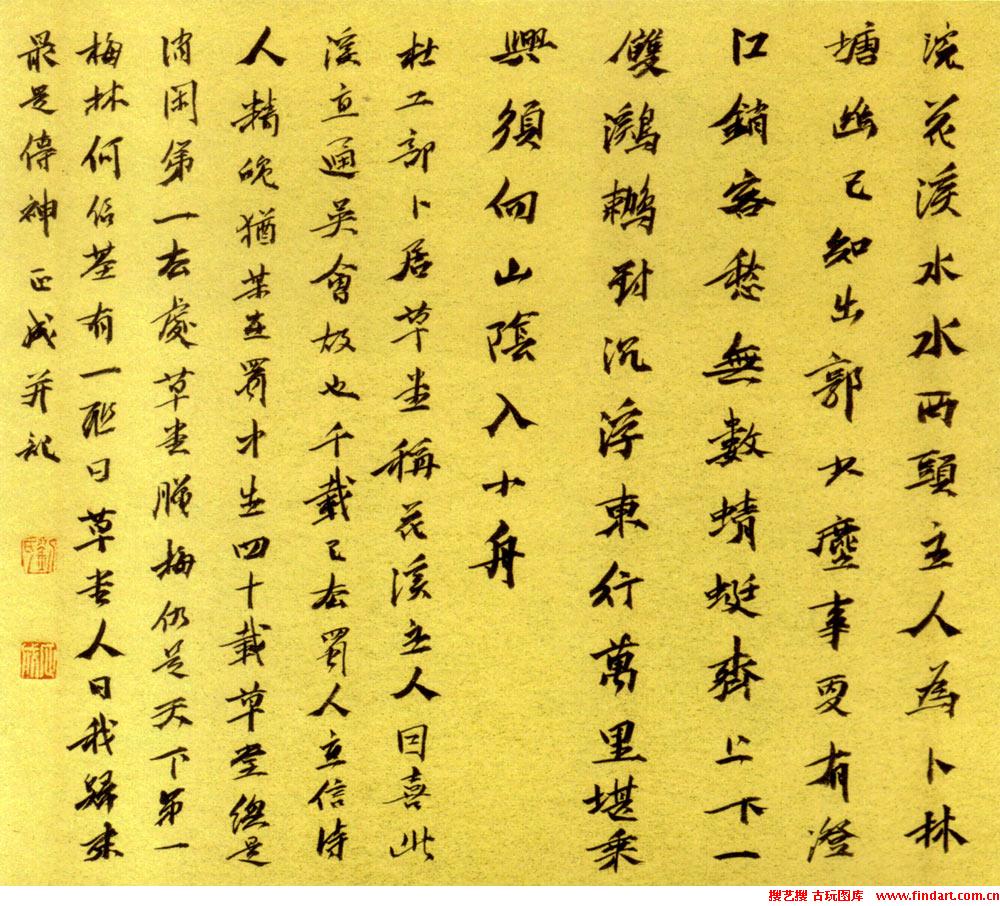 浣花溪水水西頭主人為卜林
塘幽已知出郭少塵事更有澄
江銷客愁無數蜻蜓齊上下一
雙鸂鶒對沉浮東行萬里堪乘
興須向山陰入小舟
杜工部卜居草堂稱花溪主人因喜此
溪直通吳會故也千載已去蜀人直信詩
人精魄猶在蜀才生四十載草堂總是
消閑第一去處草堂臘梅仍是天下第一
梅林何紹基有一聯曰草堂人日我歸來
最是傳神 正成并記
劉氏
正成
搜艺搜 古玩图库 www.findart.com.cn